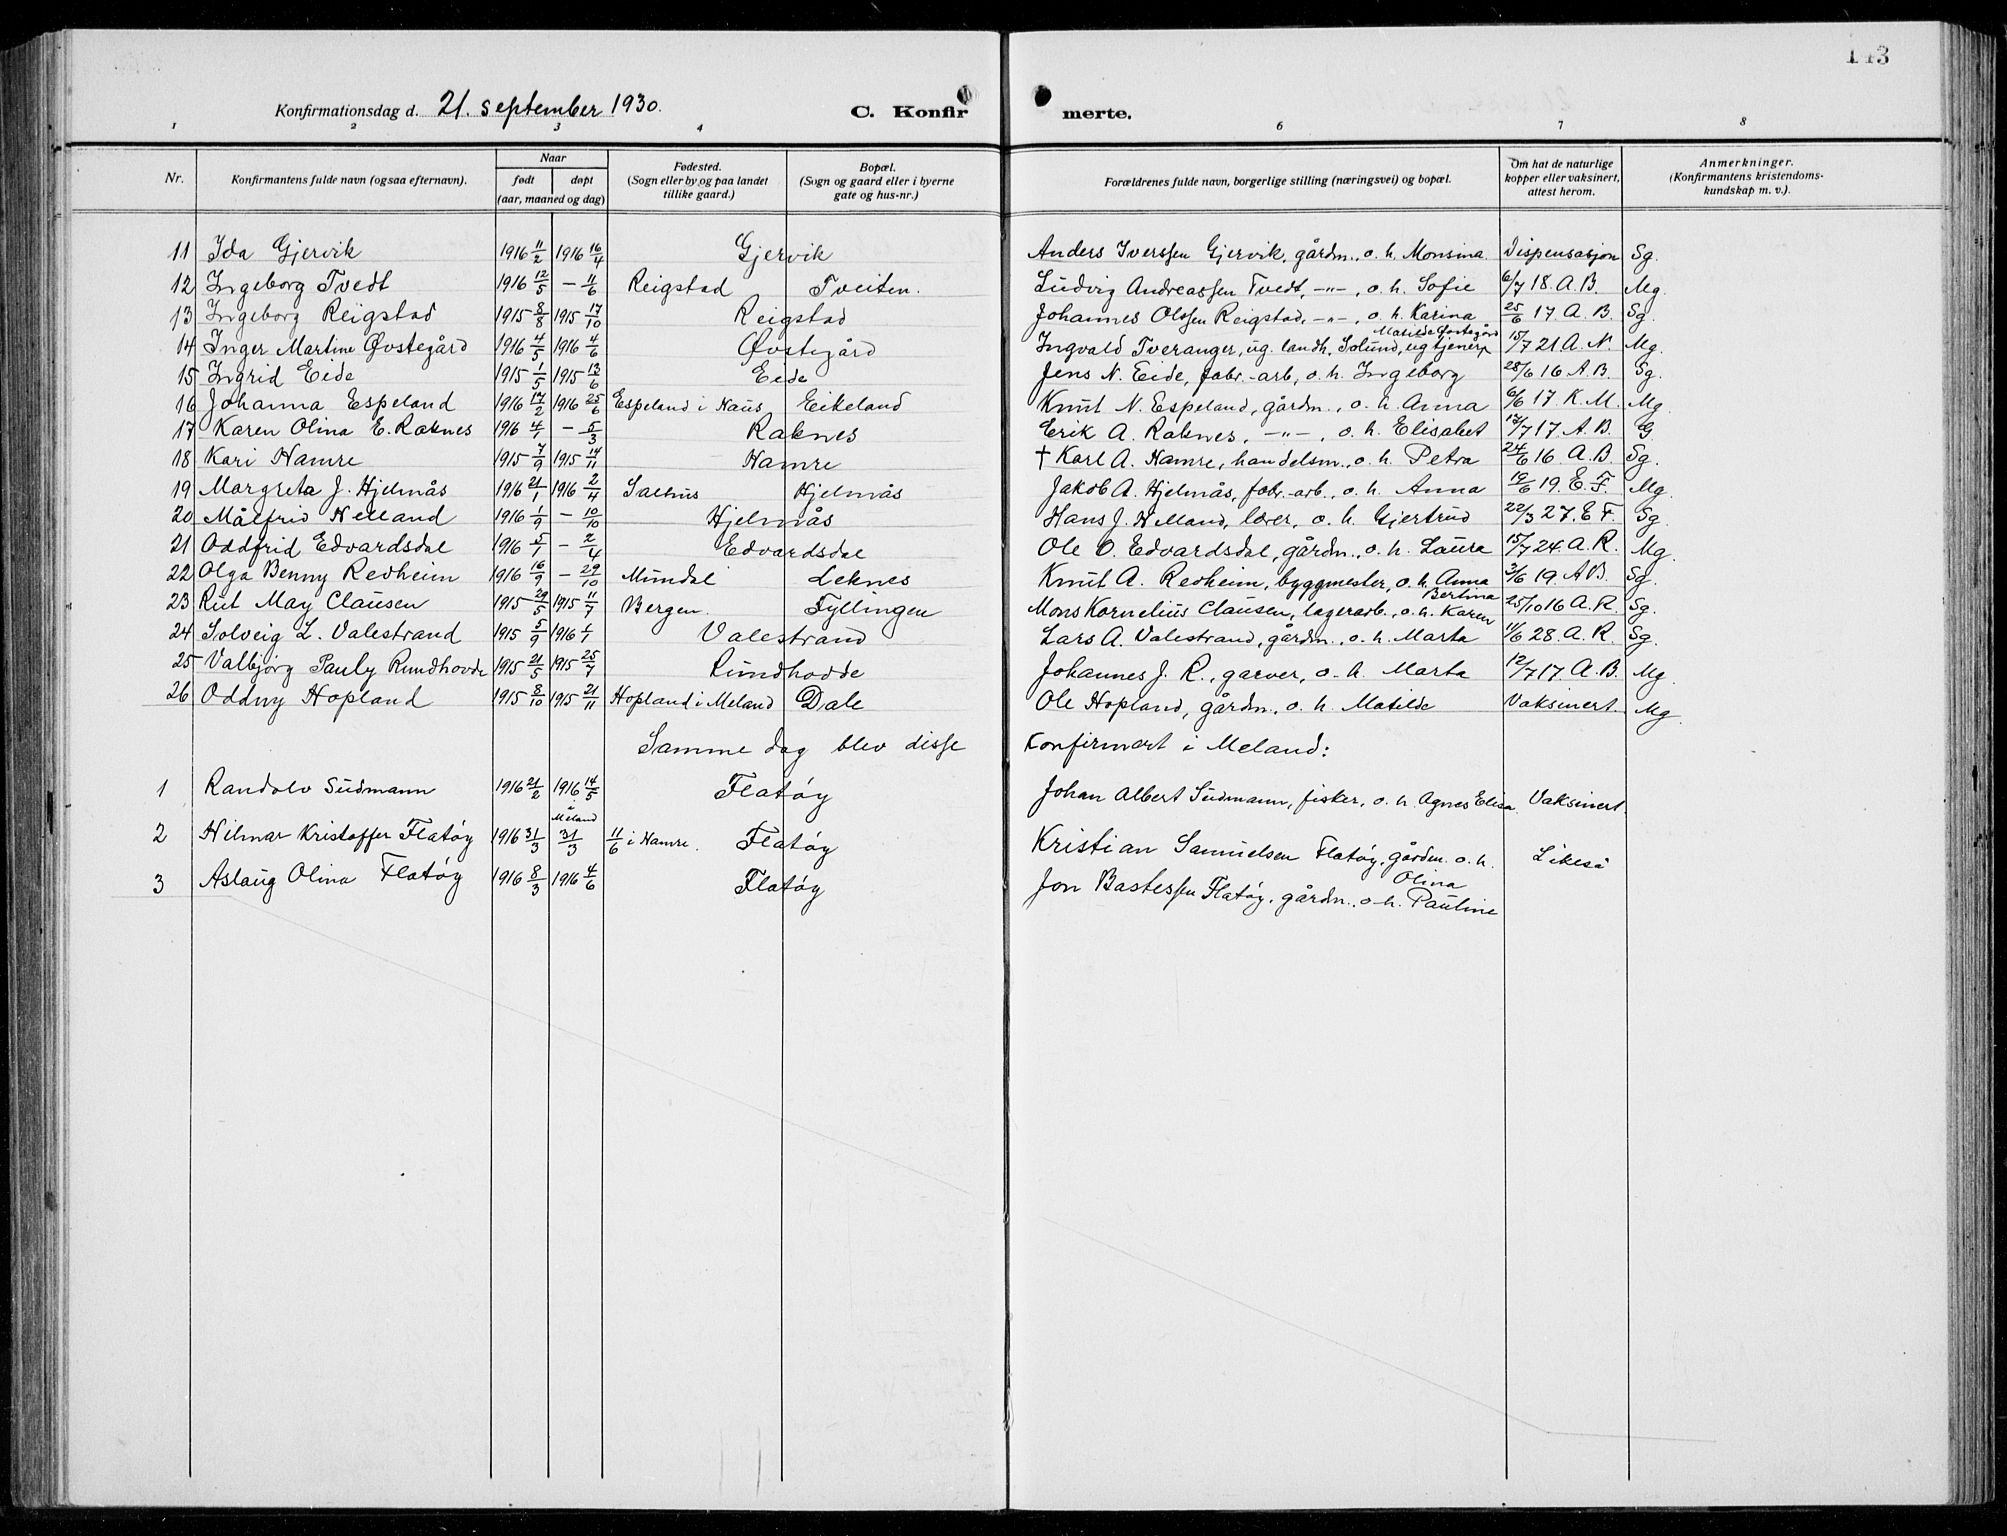 113
Konfirmationsdag d. 21. september 1930.
C. Konfirmerte.
1 2 3 4 6 7 8
Nr. | Konfirmantens fulde navn (ogsaa efternavn). | Naar født døpt (aar, maaned og dag) | Fødested. (Sogn eller by og paa landet tillike gaard.) | Bopæl. (Sogn og gaard eller i byerne gate og hus-nr.) | Forældrenes fulde navn, borgerlige stilling (næringsvei) og bopæl. | Om hat de naturlige kopper eller vaksinert, attest herom. | Anmerkninger. (Konfirmantens kristendoms-kundskap m. v.).
11 Ida Gjervik 1916 11/2 1916 16/4 Gjervik Anders Iverssen Gjervik, gårdm., o. h. Monsina Dispensasjon Sg.
12 Ingeborg Tvedt 1916 12/5 – 11/6 Reigstad Tveiten. Ludvig Andreassen Tvedt, –"–, o. h. Sofie 6/7 18. A. B. Mg.
13 Ingeborg Reigstad 1915 8/8 1915 17/10 Reigstad Johannes Olssen Reigstad, –"–, o. h. Karina 25/6 17 A. B. Sg.
14 Inger Martine Øvstegård 1916 4/5 1916 4/6 Øvstegård Ingvald Tveranger, ug. landh, Solund, ug tjenerp Matilde Øvstegård 15/7 21 A. N. Mg.
15 Ingrid Eide 1915 1/5 1915 13/6 Eide Jens N. Eide, fabr.-arb, o. h. Ingeborg 28/6 16 A. B. Sg.
16 Johanna Espeland 1916 17/2 1916 25/6 Espeland i Haus Eikeland Knut N. Espeland, gårdm., o. h. Anna 6/6 17. K. M. Mg.
17 Karen Olina E. Raknes 1916 4/1 – 5/3 Raknes Erik A. Raknes, –"–, o. h. Elisabet 12/7 17. A. B. G
18 Kari Hamre 1915 7/9 1915 14/11 Hamre † Karl A. Hamre, handelsm., o. h. Petra 24/6 16. A. B. Sg.
19 Margreta J. Hjelmås 1916 21/1 1916 2/4 Salhus Hjelmås Jakob A. Hjelmås, fabr.-arb., o. h. Anna 19/6 19. E. F. Mg.
20 Målfrid Helland 1916 1/9 – 10/10 Hjelmås Hans J. Helland, lærer, o. h. Gjertrud 22/3 27. E F. Sg.
21 Oddfrid Edvardsdal 1916 5/1 – 2/4 Edvardsdal Ole O. Edvardsdal, gårdm., o. h. Laura 15/7 24. A. R. Mg.
22 Olga Benny Redheim 1916 16/9 – 29/10 Mundal Leknes Knut A. Redheim, byggmester, o. h. Anna 3/6 19. A B. Sg.
23 Rut May Clausen 1915 29/5 1915 11/7 Bergen. Fyllingen Mons Kornelius Clausen, lagerarb., o. h. Karen Bertina 25/10 16 A. R. Sg.
24 Solveig L. Valestrand 1915 5/9 1916 1/1 Valestrand Lars A. Valestrand, gårdm., o. h. Marta 11/6 28. A. R. Sg.
25 Valbjörg Pauly Rundhovde 1915 21/5 1915 25/7 Rundhovde Johannes J. R., garver, o. h. Marta 12/7 17. A. B. Mg.
26 Oddny Hopland 1915 8/10 1915 21/11 Hopland i Meland Dale Ole Hopland, gårdm., o. h. Matilde Vaksinert. Mg.
Samme dag blev disse Konfirmert i Meland:
1 Randolv Südmann 1916 21/2 1916 14/5 Flatøy Johan Albert Südmann, fisker, o. h. Agnes Elisa. Vaksinert.
2 Hilmar Kristoffer Flatøy 1916 31/3 Meland 31/3 11/6 i Hamre. Flatøy Kristian Samuelsen Flatøy, gårdm. o. h. Olina Likeså
3 Aslaug Olina Flatøy 1916 8/3 1916 4/6 Flatøy Jon Bastessen Flatøy, gårdm., o h. Pauline